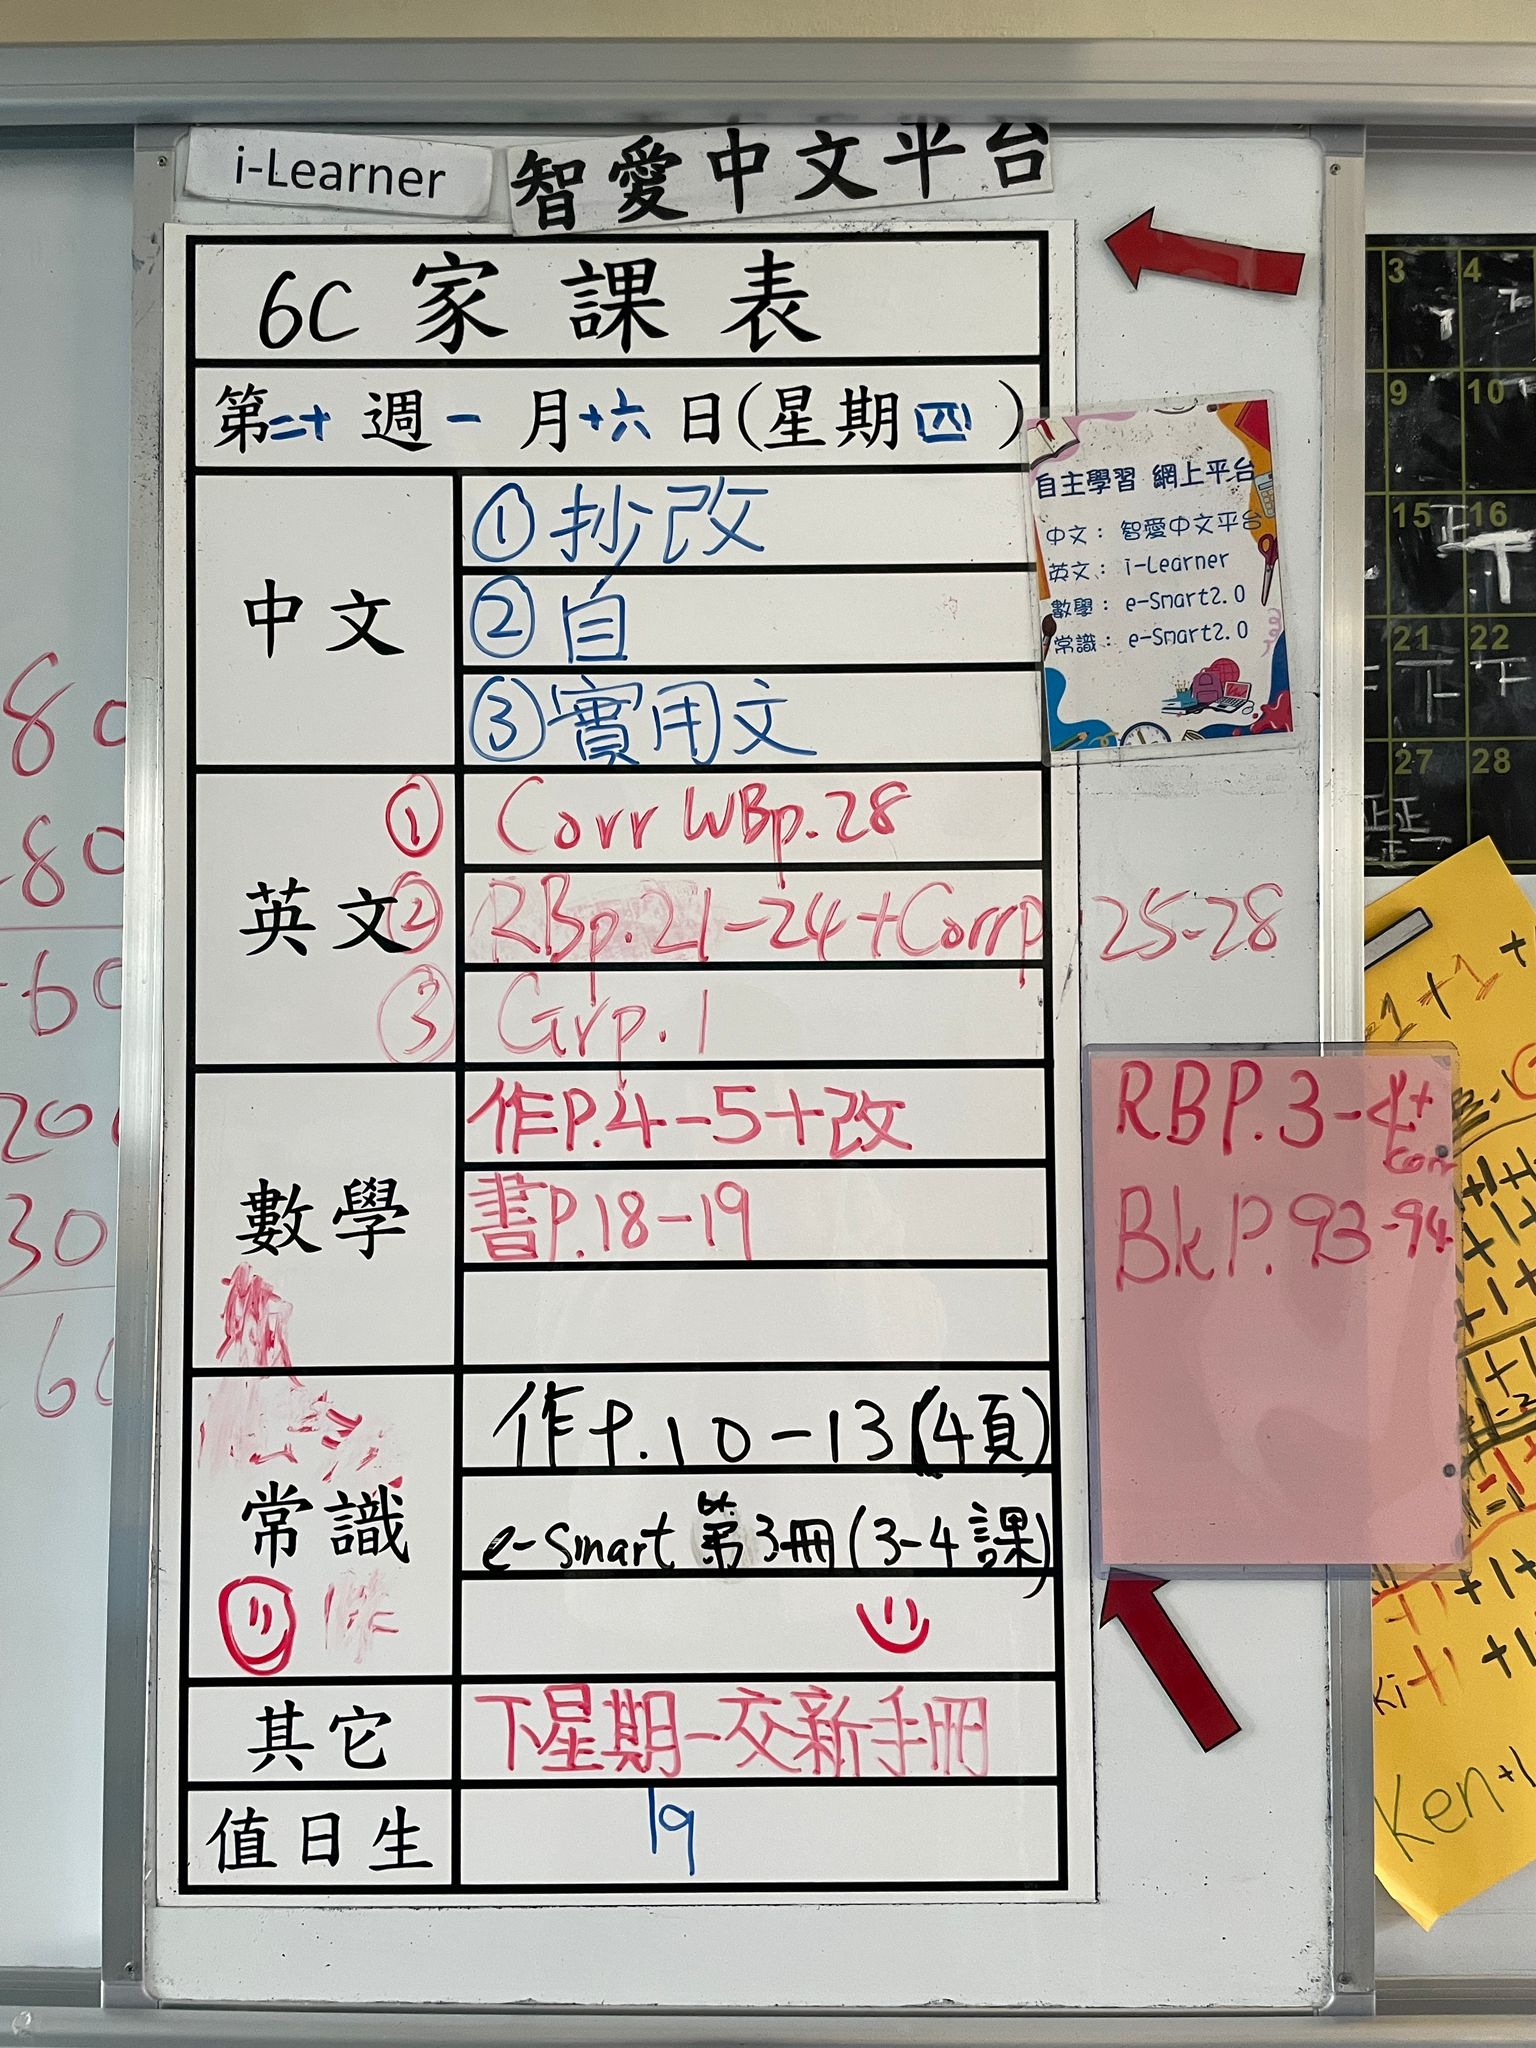 i-Learner 智愛中文平台
6C 家課表
第二十週一月十六日(星期四)
中文
①抄改
②自
③實用文
英文
① Corr WBp.28
② RBp.21-24+Corrp 25-28
③ Grp.1
數學
作P.4-5+改
書P.18-19
常識
作P.10-13(4頁)
e-Smart 第3冊(3-4課)
其它
下星期一交新手冊
值日生
19
自主學習 網上平台
中文: 智愛中文平台
英文: i-Learner
數學: e-Smart2.0
常識: e-Smart2.0
RBP.3-4+
Corr
BkP.93-94
3 4
9 10
15 16
21 22
27 28
80
80
60
200
30
Ken+1